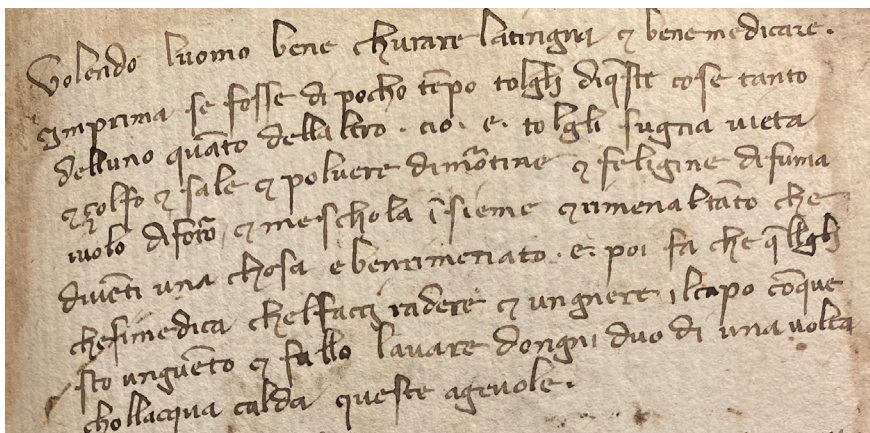 Volendo luomo bene churare latingna & bene medicare.
Imprima se fosse di pocho tēpo tolghi diq̄ste cose tanto
delluno quāto dellaltro . cio . e . tolghi sugna vieta
& çolfo & sale & polvere dimōtine & feligine difuma
iuolo diforō & meschola īsieme & rimenaltāto che
diventi una chosa e benrimenato . e . poi fa che q̄llghi
chesimedica chelfacci radere & ungniere ilcapo cōque
sto unguēto & fallo lavare dongni duo di una volta
chollacqua calda queste agevole.